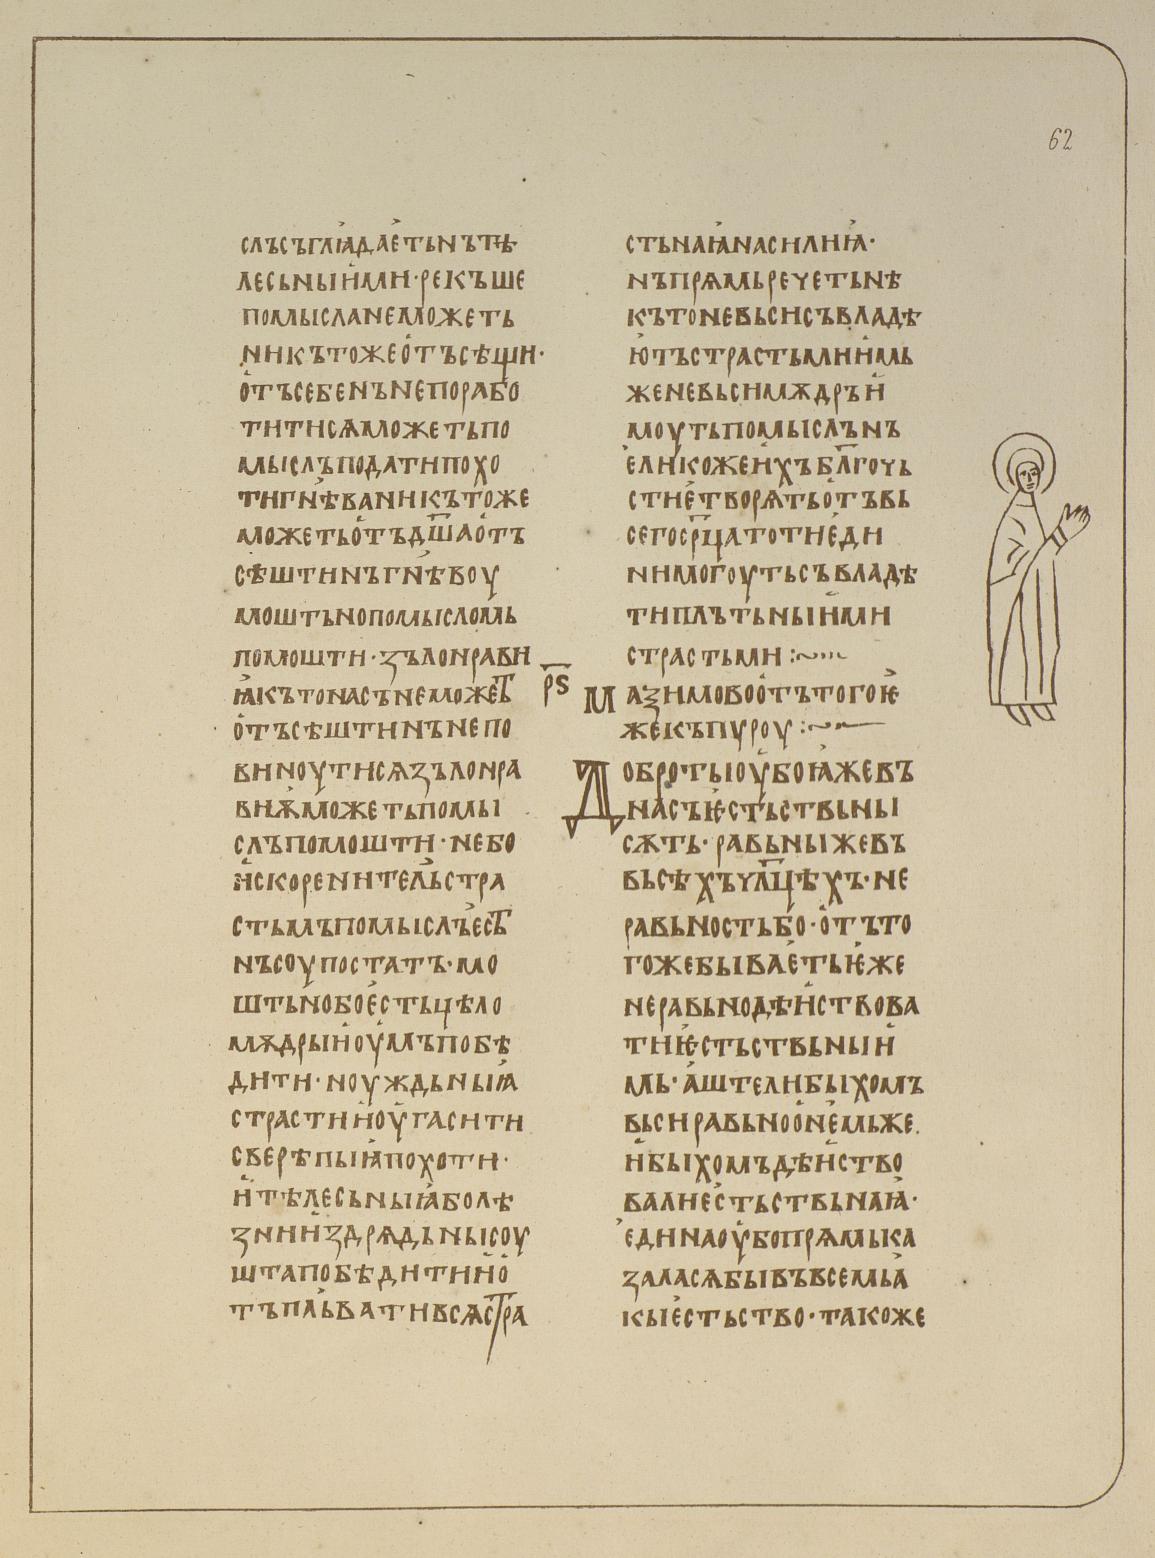 62
слъсъглꙗдаѥтьнътѣ
лесьныими·рекъше
помысланеможеть
никътожеотъсѣщи·
отъсебенънепорабо
титисѧможетьпо
мыслъподатипохо
тигнѣваникътоже
можетьотъдш҃аот
сѣштинъгнѣвоу
моштьнопомысломь
помошти·ꙁълонрави
ꙗкътонасънеможет
отъсѣштинънепо
виноутисѧꙁълонра
виѭможетьпомы
слъпомошти·небо
искоренительстра
стьмъпомыслъест
нъсоупостатъ·мо
штьнобоестьцѣло
мѫдрыиоумъпобѣ
дити·ноуждьныꙗ
страстииоугасити
сверѣпыꙗпохоти·
итѣлесьныꙗболѣ
ꙁнииꙁдрѧдьнысоу
штапобѣдитиио
тъпльвативсѧстра
стьнаꙗнасилиꙗ·
нъпрѧмьречетьнѣ
къtоневьсисъвладѣ
ютъстрастьмиимь
женевьсимѫдрѣи
моутьпомыслънъ
еликожеихъбл҃гочь
стиетворѧтьотъвь
сегоср҃цатотиеди
нимогоутьсъвладѣ
типлътьныими
страстьми:~
рѕ҃
Маꙁимовоотътогоѥ
жекъпуроу:~
Добротыоубоꙗжевъ
насъѥстьствьны
сѫть·равьныжевъ
вьсѣхъчл҃цѣхъ·не
равьностьбо·отъто
гожебываетьѥже
неравьнодѣиствова
тиѥстьствьныи
мь·аштелибыхомъ
вьсиравьноонемьже·
ибыхомъдѣиство
валиестьствьнаꙗ·
единаоубопрѧмька
ꙁаласѧбывъвсемьꙗ
кыестьство·такоже